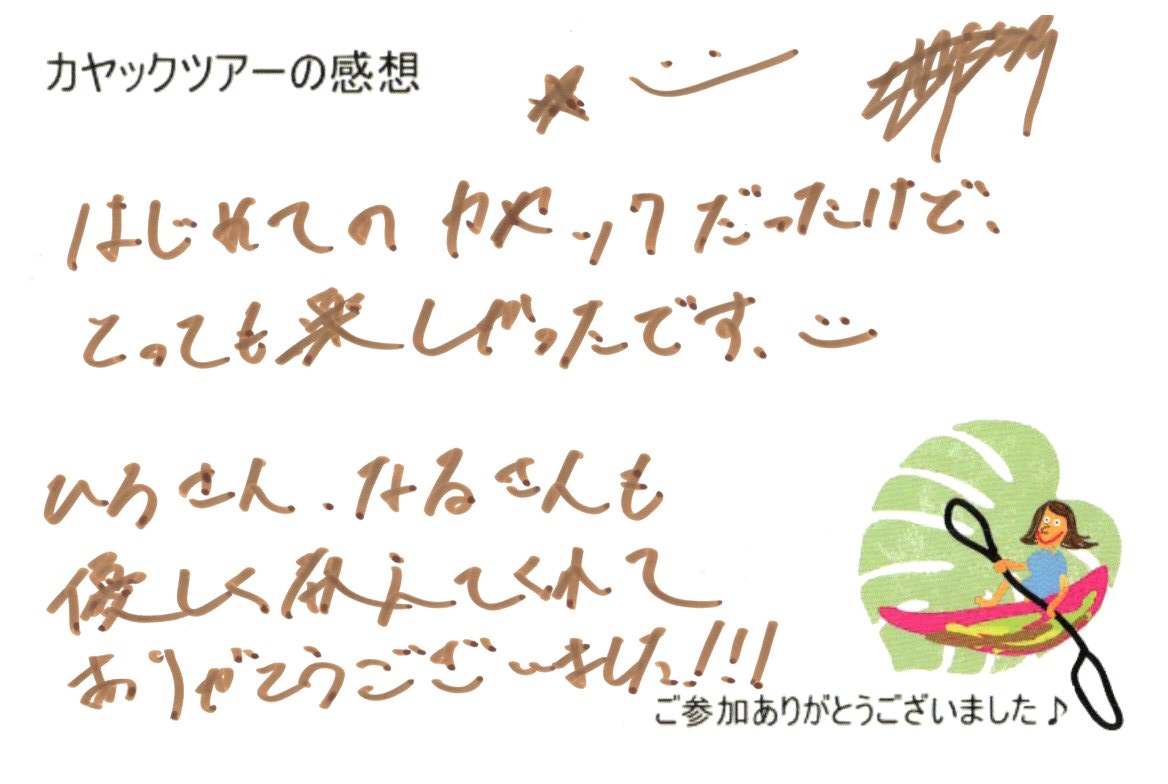 カヤックツアーの感想
はじめてのカヤックだったけど、
とっても楽しかったです、
ひろさん、なるさんも
優しく教えてくれて
ありがとうございました!!!
ご参加ありがとうございました♪